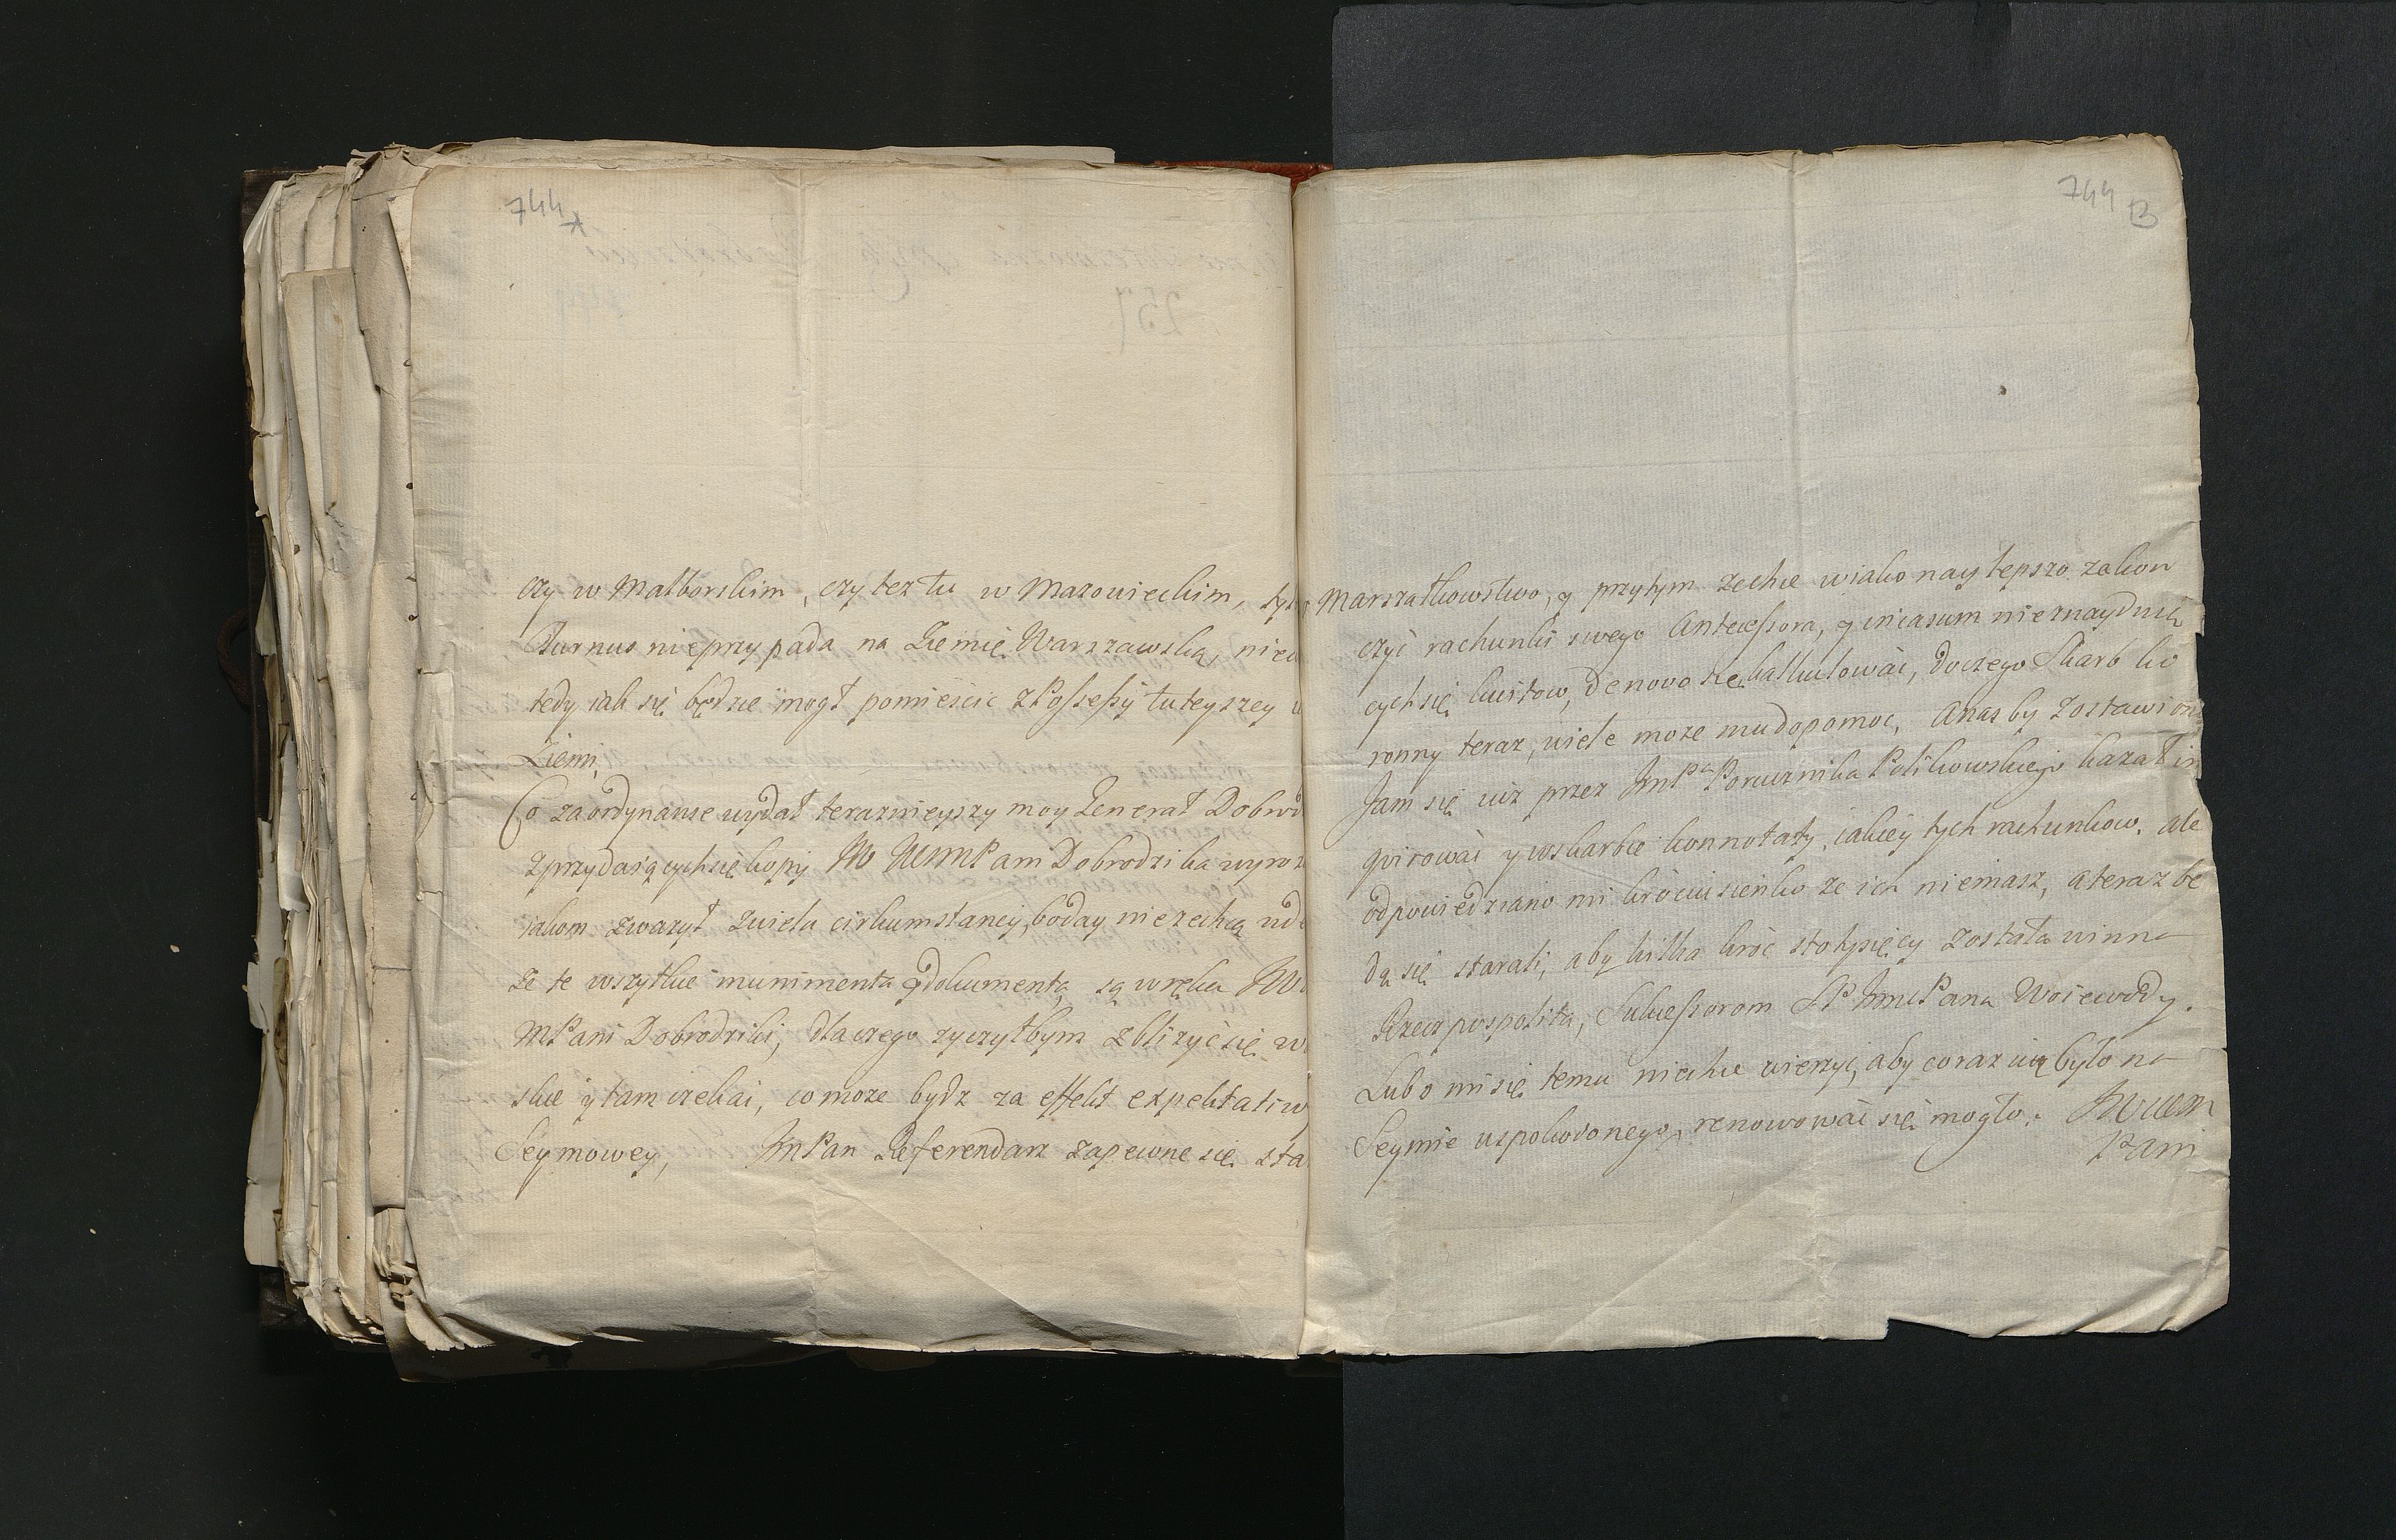 744
*
czy w Malborskim, czy tez tu w Mazowieckim,
Turnus nieprzypada na Ziemię Warszawską,
tedy iak się będzie mogł pomieścić z Possessyi tuteyszey
Ziemi.
Co za ordynanse wydał teraznieyszy moy Generał
z przydaiących się kopij Pani Dobrodzika
iakom zwazył z wielu cirkumstancij, boday nie zechcą
ze te wszytkie munimenta y dokumenta są w ręku
MPani Dobrodziki, dlaczego zyczyłbym zblizyć się
skie y tam czekai, co moze bydz za effekt expektatiwy
Seymowey, JmPan Referendarz zapewne się sta
744 B
Marszałkowstwo, y przytym zechce wiako naylepszo zakon
czyć rachunki swego Antecessora, y in casum nieznayduią
cych się kwitow, denovo kalkulować, do czego Skarb ko
ronny teraz, wiele moze mu dopomoc, A nas by zostawiono
Jam się iuz przez JmPa Porucznika Polikowskiego kazał in
qvirować y w skarbie konnotaty, iakiey tych rachunkow, ale
odpowiedziano mi krociusienko ze ich niemasz, a teraz bę
dą się starali, aby kilka kroć sto tysięcy została winna
Rzeczpospolita, Sukcessorom SP JmcPana Woiewody.
Lubo mi się temu niechce wierzyć, aby coraz iuz było na
Seymie uspokoionego, renowować się mogło.
Pani